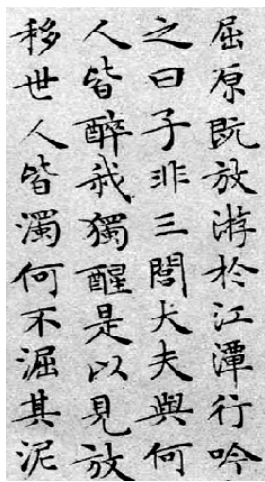 屈原既放游於江潭行吟
之曰子非三閭大夫與何
人皆醉我獨醒是以見放
移世人皆濁何不淈其泥